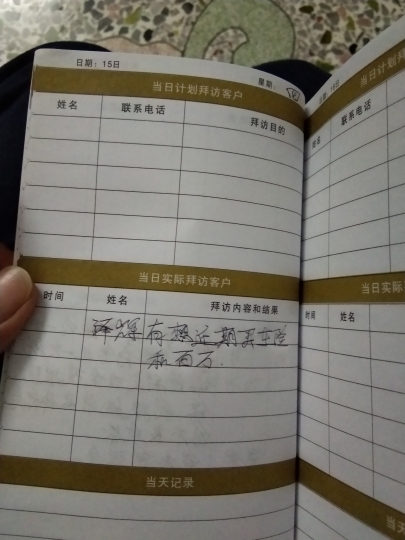 日期：15日
星期：
当日计划拜访客户
姓名 联系电话 拜访目的
当日实际拜访客户
时间 姓名 拜访内容和结果
译辉 有想近期买车险
和百万.
当天记录
当日计划拜访客户
姓名 联系电话
当日实际
时间 姓名
当天